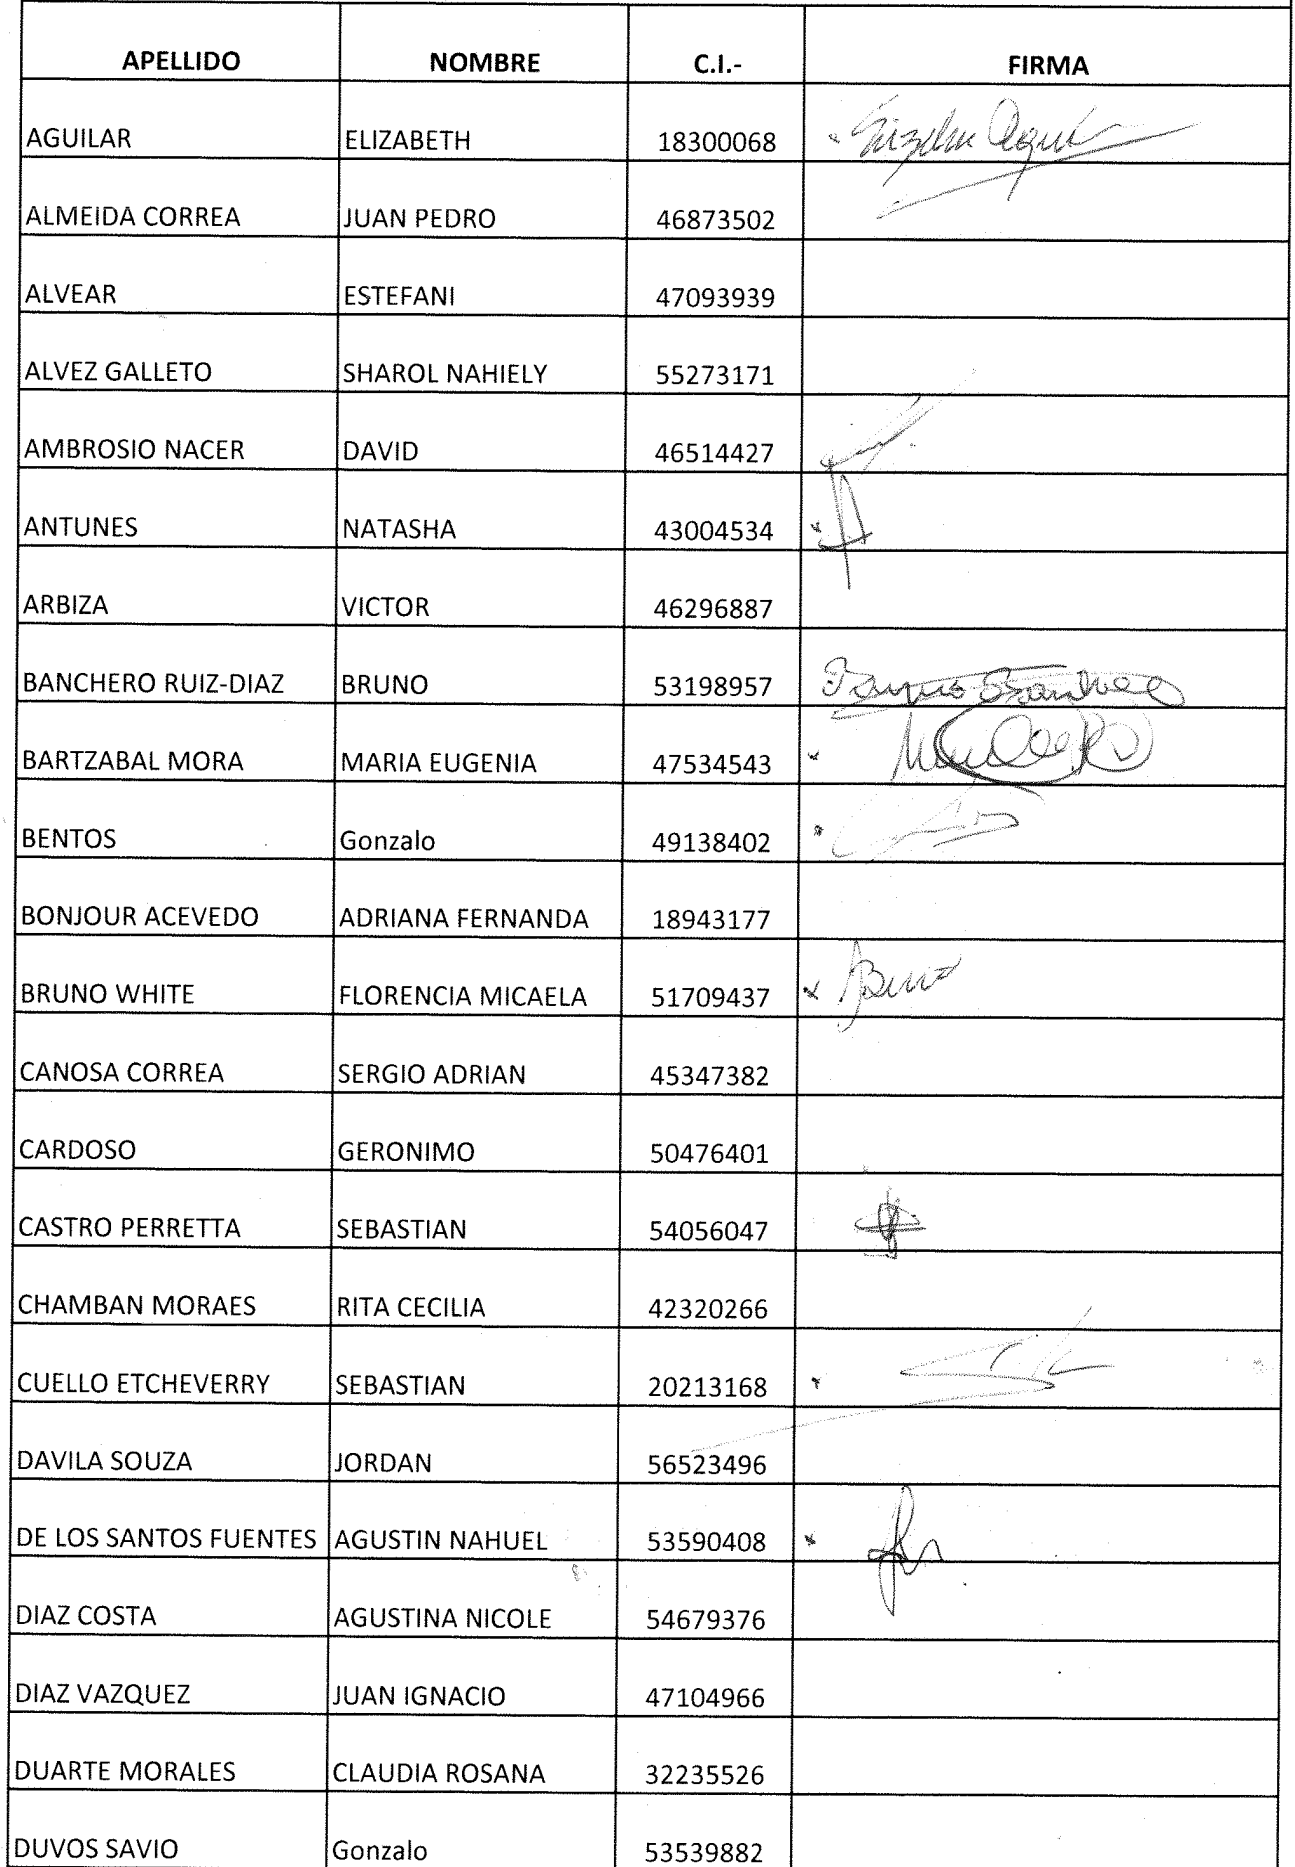 APELLIDO NOMBRE C.I.- FIRMA
AGUILAR ELIZABETH 18300068
ALMEIDA CORREA JUAN PEDRO 46873502
ALVEAR ESTEFANI 47093939
ALVEZ GALLETO SHAROL NAHIELY 55273171
AMBROSIO NACER DAVID 46514427
ANTUNES NATASHA 43004534
ARBIZA VICTOR 46296887
BANCHERO RUIZ-DIAZ BRUNO 53198957
BARTZABAL MORA MARIA EUGENIA 47534543
BENTOS Gonzalo 49138402
BONJOUR ACEVEDO ADRIANA FERNANDA 18943177
BRUNO WHITE FLORENCIA MICAELA 51709437
CANOSA CORREA SERGIO ADRIAN 45347382
CARDOSO GERONIMO 50476401
CASTRO PERRETTA SEBASTIAN 54056047
CHAMBAN MORAES RITA CECILIA 42320266
CUELLO ETCHEVERRY SEBASTIAN 20213168
DAVILA SOUZA JORDAN 56523496
DE LOS SANTOS FUENTES AGUSTIN NAHUEL 53590408
DIAZ COSTA AGUSTINA NICOLE 54679376
DIAZ VAZQUEZ JUAN IGNACIO 47104966
DUARTE MORALES CLAUDIA ROSANA 32235526
DUVOS SAVIO Gonzalo 53539882